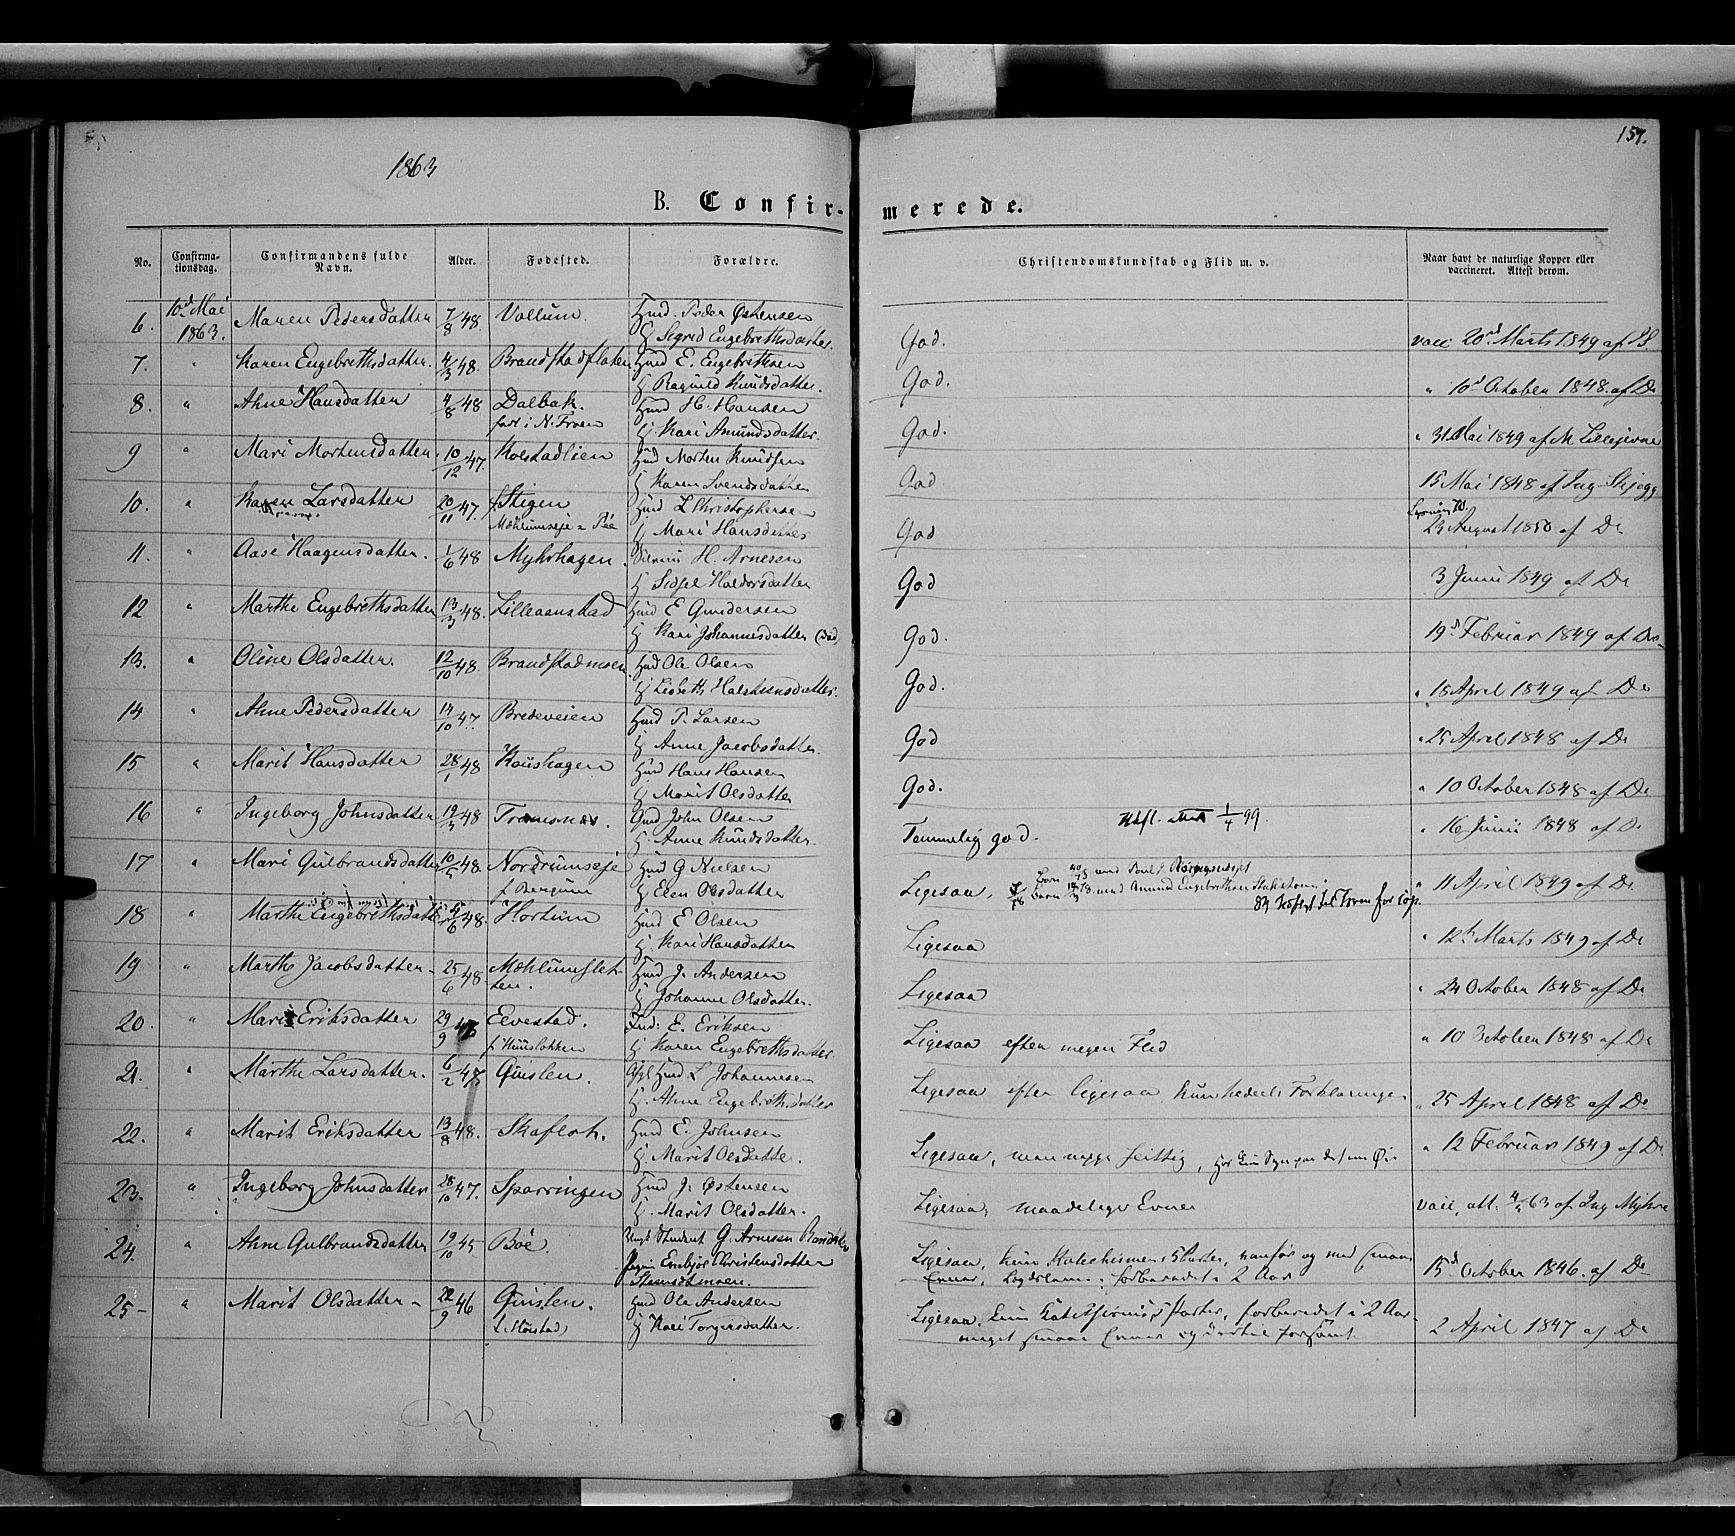 1863
157.
B. Confir-
merede.
No.
Confirma-
tionsdag.
Confirmandens fulde
Navn.
Alder.
Fødested.
Forældre.
Christendomskundskab og Flid m. v.
Naar havt de naturlige Kopper eller
vaccineret. Attest derom.
6. 10d Mai 1863. Maren Pedersdatter 7/8 48 Vollum. Huusmd. Peder Østensen
H Sigrid Engebrethsdatter.
God. vacc 20d Marts 1849 af
7. " Karen Engebrethsdatter. 4/3 48. Brandstadfloten Huusmd E. Engebrethsen
H Ragnild Knudsdatter.
God. " 10d October 1848 af Do
8. " Ahne Hansdatter 4/8 48 Dalbak. Huusmd H. Hansen
født i N. Fron H. Kari Amundsdatter.
God. " 31 Mai 1849 af M. Lillejevne
9 " Mari Mortensdatter. 10/12 47. Kolstadlien Huusmd Morten Knudsen
H Karen Svendsdatter
God 15 Mai 1848 af Ing. Skjegg
10. " Karen Larsdatter 20/11 47. Stigen Huusmd L Christophersen
Mæhlumseje H Mari Hansdatter
God 23 August 1850 af Do
11. " Aase Haagensdatter. 1/6 48 Myhrhagen. H. Arnesen
H Sidsel Haldorsdatter
God 3 Junii 1849 af Do
12 " Marthe Engebrethsdatter 13/3 48. Lilleaanstad Huusmd E Gundersen
H Kari Johannesdatter (død)
God. 19d Februar 1849 af Do
13. " Oline Olsdatter. 12/10 48. Brandstadmoen Huusmd Ole Olsen
H Lisbeth Halstensdatter.
God. " 18 April 1849 af Do
14 " Ahne Pedersdatter 14/10 47. Bredeveien Huusmd P. Larsen
H Anne Jacobsdatter.
God " 25 April 1848 af Do
15 " Marit Hansdatter 28/1 48 Kaushagen Huusmd Hans Hansen
H Marit Olsdatter
God. " 10 October 1848 af Do
16 " Ingeborg Johnsdatter 19/3 48 Tromsnæs. Gmd John Olsen
H. Anne Knudsdatter.
Temmelig god. 1/4 99. " 16 Junii 1848 af Do
17 " Mari Gulbrandsdatter 10/5 48. Nordrumseje Huusmd G Nielsen
f Bergum H Elen Olsdatter
Ligesaa, " 11 April 1849 af Do
18 " Marthe Engebrethsdatter 48. Hortum Huusmd E Olsen
H. Kari Hansdatter
Ligesaa " 12te Marts 1849 af Do
19 " Marthe Jacobsdatter 25/6 48. Mæhlumslet-
ten. Huusmd J. Andersen
H Johanne Olsdatter.
Ligesaa " 24 October 1848 af Do
20. " Mari Eriksdatter 29/9 48 Elvestad. Ind: E. Eriksen
H Karen Engebrethsdatter
Ligesaa efter megen Flid " 10 October 1848 af Do
21. " Marthe Larsdatter. 6/2 48 Qvislen. Afg Huusmd L Johannesen
H. Ahne Engebrethsdatter
Ligesaa efter ligesaa kun hedeels Forklaringen " 25 April 1848 af Do
22. " Marit Eriksdatter 13/8 48. Skaflot. Huusmd E. Johnsen
H. Marit Olsdatter.
Ligesaa, " 12 Februar 1849 af Do
23. " Ingeborg Johnsdatter 28/10 47. Sparringen Huusmd J. Østensen
H. Marit Olsdatter.
Ligesaa, maadelige Evner vacc, att. 63 af Ing Myhre
24. " Ahne Gulbrandsdatter 19/10 45 Böe. Ungk Student G. Arnesen
Pigen Embjør Christensdatter
Stamstadmoen.
Ligesaa, kun Katechismens Parter, vanfør og med smaa
Evner, forberedet i 2 Aar 15d October 1846 af Do
25 " Marit Olsdatter 22/9 46 Qvislen. Huusmd Ole Andersen
H Kari Torgersdatter.
Ligesaa, kun Katechismus Parter, forberedet i 2 Aar
meget smaae Evner og dertil forsømt 2 April 1847 af Do